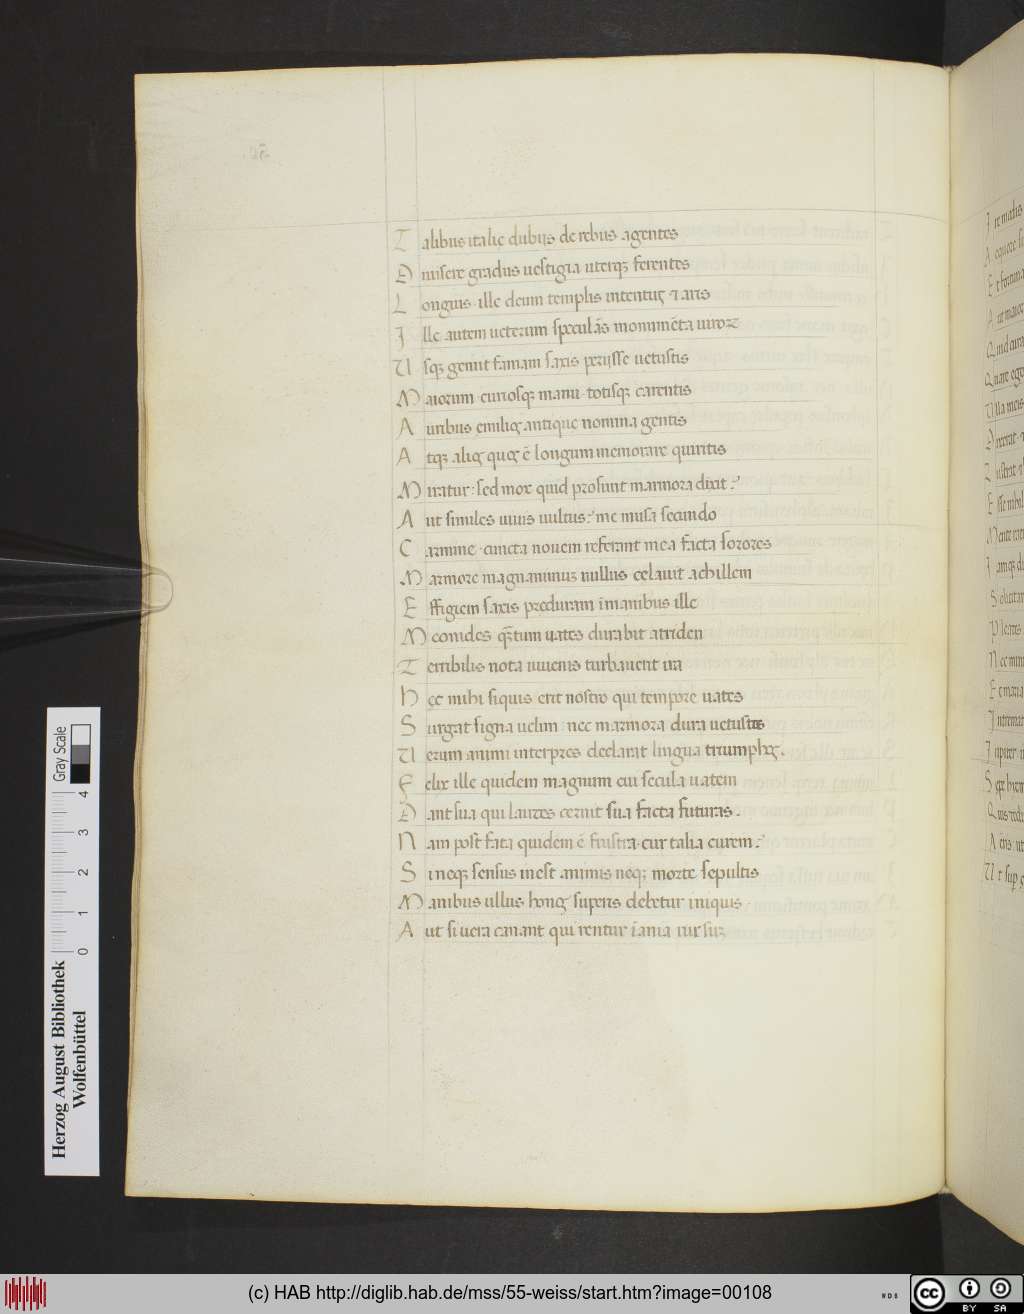 T alibus italie dubiis de rebus agentes
D miſere gradus ueſtigia uterqꝫ ferentes
L onguis ille deum templis intentuꝰ ⁊ aris
I lle autem ueterum ſpeculãs monumẽta uiroꝝ
U sqꝫ genuit famam ſaxis periiſſe uetuſtis
M aiorum curioſqꝫ manu totiſqꝫ carentis
A uribus ęmiliꝙ antique nomina gentis
A tqꝫ alię quęꝙ ẽ longum memorare quiritis
M iratur: sed mox quid proſunt marmora dixit:
A ut ſimiles uiuis uultus: me muſa ſecundo
C armine cuncta nouem referant mea facta ſorores
M armore magnanimuꝫ nullus celauit achillem
E ffigiem ſaxis preduram ĩmanibus ille
M eonides qᷓtum uates durabit atriden
T erribilis nota iuuenis turbauerit ira
H ęc mihi ſiquis erit noſtro qui tempore uates
S urgat ſigna uelim: nec marmora dura uetuſtas
U erum animi interpres declarat lingua triumphꝙ.
F elix ille quidem magnum cui ſecula uatem
D ant ſua qui laures cernit ſua facta futuras.
N am poſt fata quidem ẽ fruſtra cur talia curem:
S i neqꝫ ſenſus ineſt animis neqꝫ morte ſepultis
M anibus ullus honꝙ ſuperis debetur iniquis
A ut ſi uera canant qui rentur ĩania rurſuꝫ
Herzog August Bibliothek
Wolfenbüttel
0 1 2 3 4
Gray Scale
(c) HAB http://diglib.hab.de/mss/55-weiss/start.htm?image=00108
cc BY SA